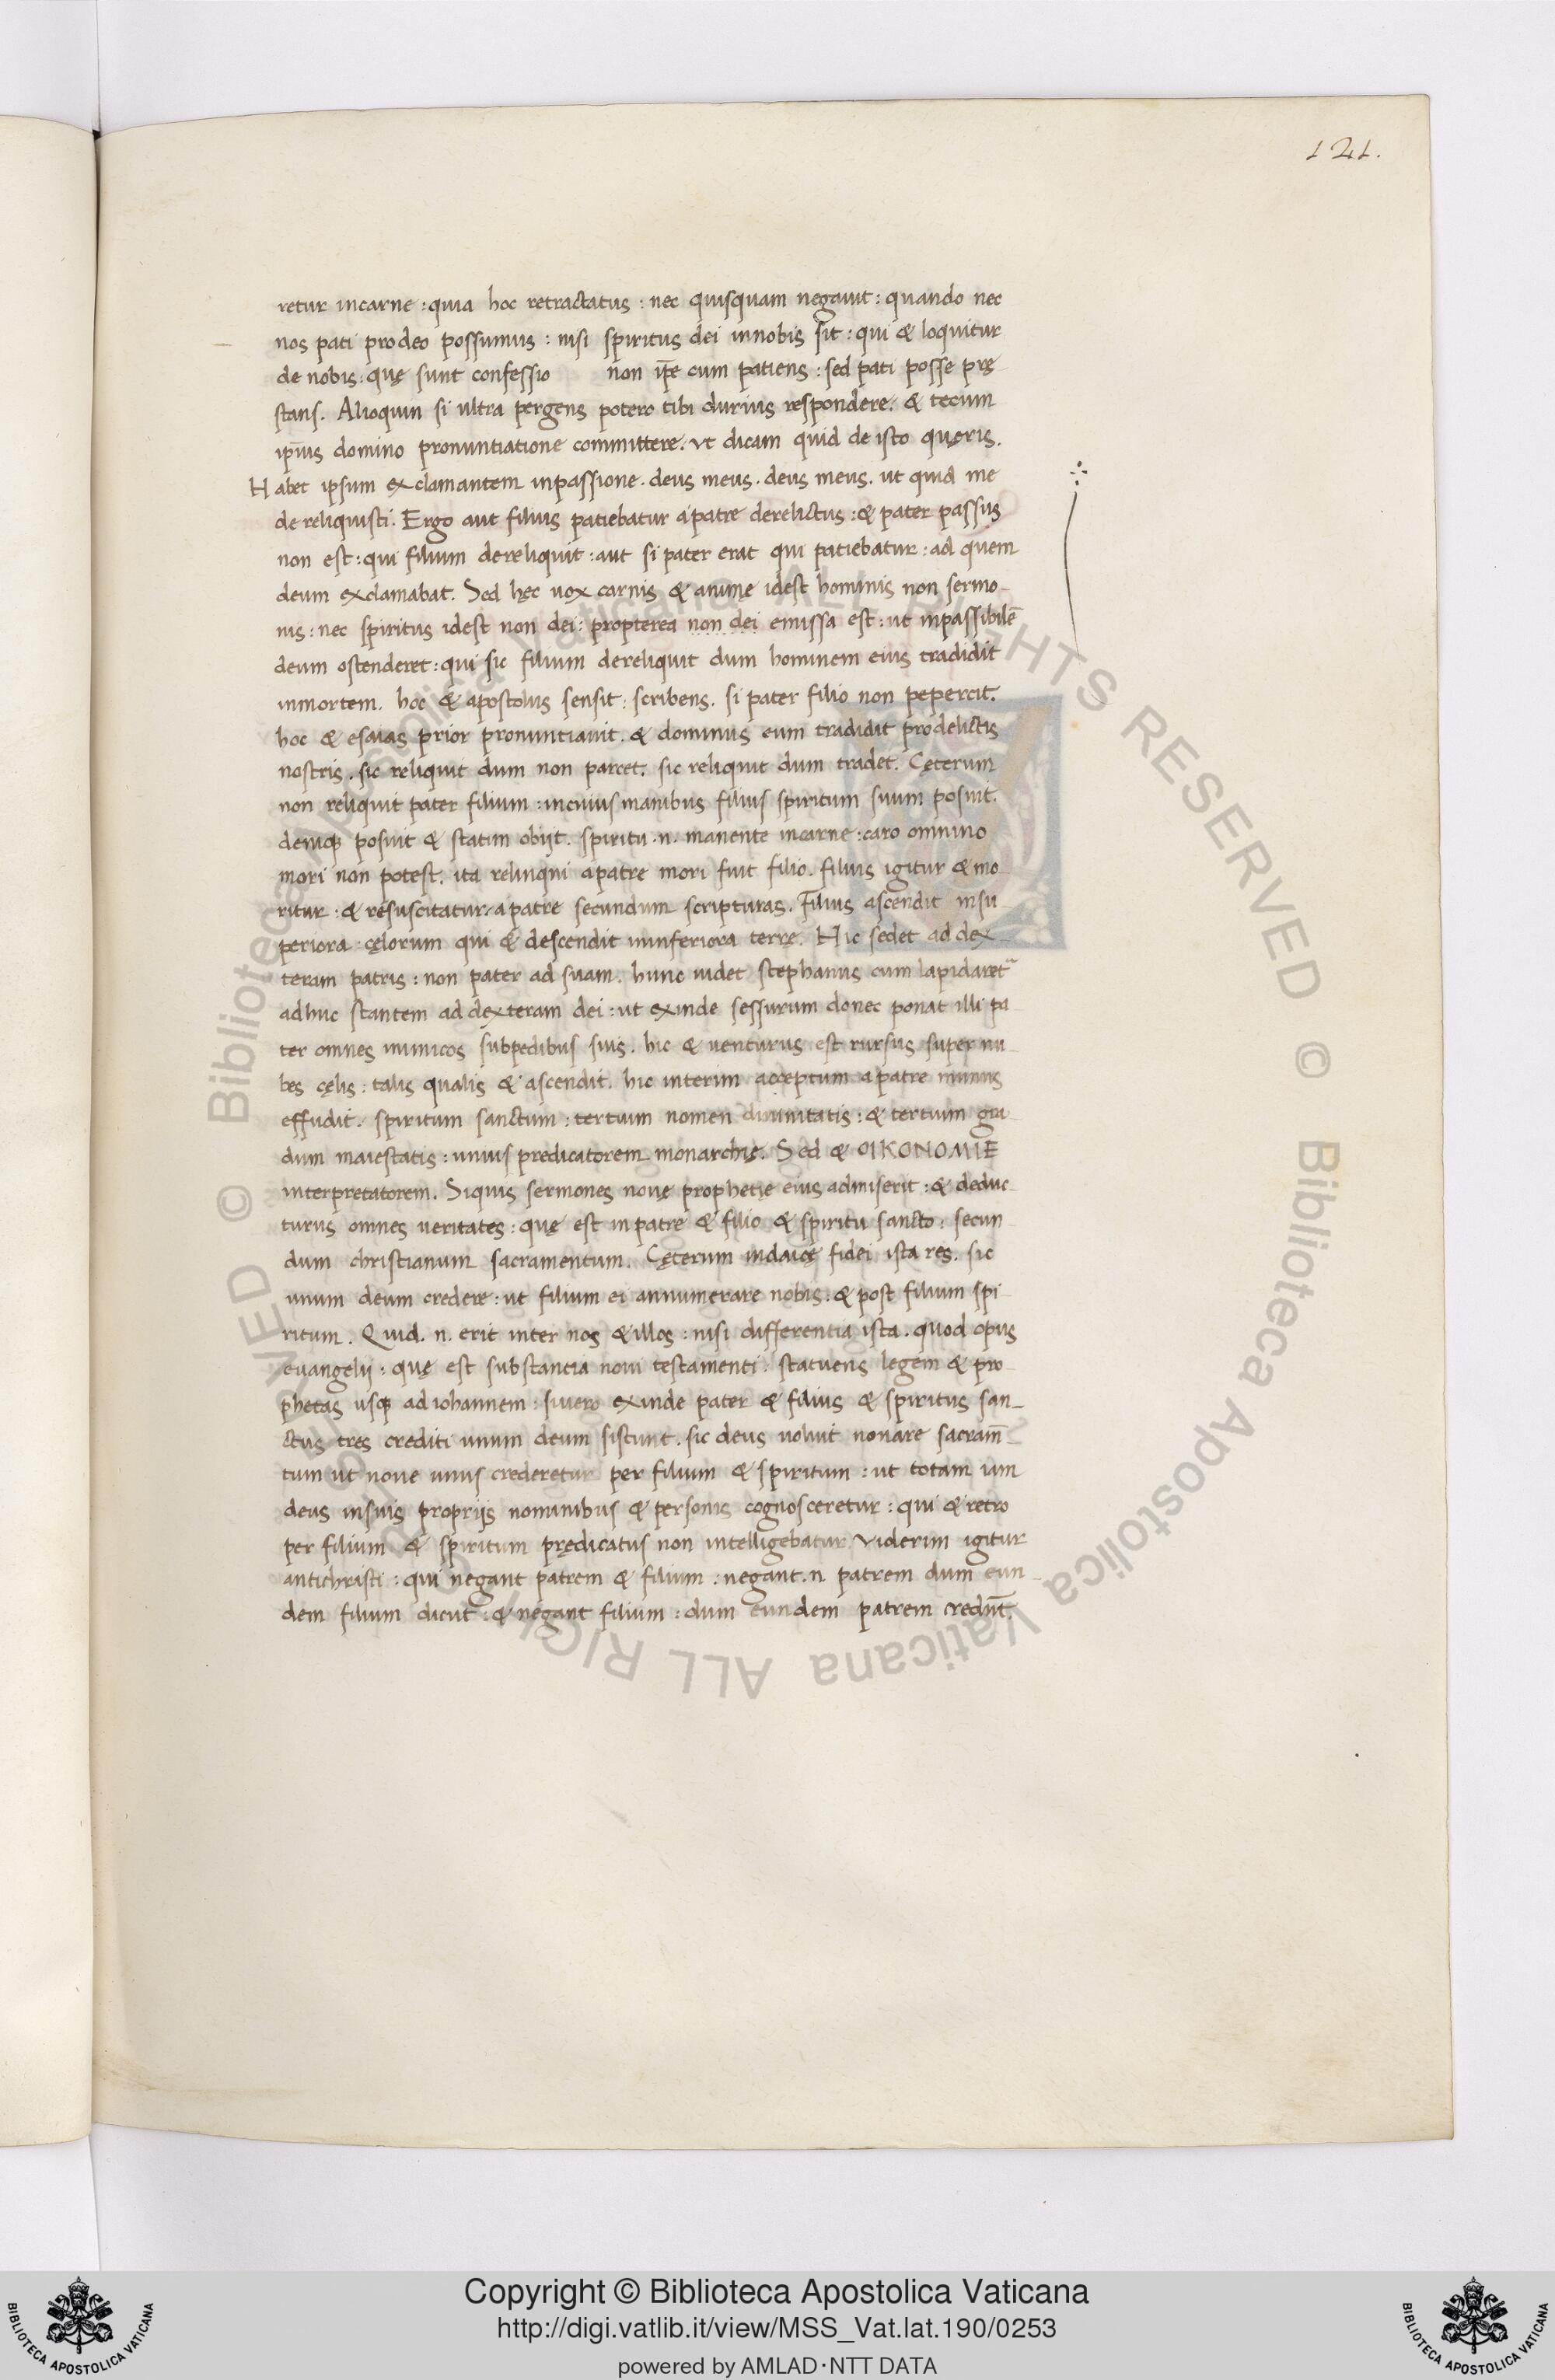 121.
retur incarne : quia hoc retractatus : nec quisquam negauit : quando nec
nos pati prodeo possumus : nisi spiritus dei innobis sit : qui & loquitur
de nobis : quę sunt confessio non ip̄e cum patiens : sed pati posse prę
stans. Alioquin si ultra pergens potero tibi durius respondere. & tecum
ip̄ius domino pronuntiatione committere. vt dicam quid de isto quęris.
Habet ipsum exclamantem inpassione. deus meus. deus meus. ut quid me
de reliquisti. Ergo aut filius patiebatur apatre derelictus : & pater passus
non est : qui filium dereliquit : aut si pater erat qui patiebatur : ad quem
deum exclamabat. Sed hęc uox carnis & animę idest hominis non sermo-
nis : nec spiritus idest non dei : propterea non dei emissa est : ut inpassibilē
deum ostenderet : qui sic filium dereliquit dum hominem eius tradidit
inmortem. hoc & apostolus sensit : scribens. si pater filio non pepercit.
hoc & esaias prior pronuntiauit. & dominus eum tradidit prodelictis
nostris. sic reliquit dum non parcet. sic reliquit dum tradet. Cęterum
non reliquit pater filium : incuius manibus filius spiritum suum posuit.
deniqꝫ posuit & statim obijt. spiritu .n. manente incarne : caro omnino
mori non potest. ita relinqui apatre mori fuit filio. filius igitur & mo-
ritur : & resuscitatur apatre secundum scripturas. Filius ascendit insu-
periora cęlorum qui & descendit ininferiora terrę. Hic sedet ad dex-
teram patris : non pater ad suam. hunc uidet stephanus cum lapidaret᷑
adhuc stantem ad dexteram dei : ut exinde sessurum donec ponat illi pa
ter omnes inimicos subpedibus suis. hic & uenturus est rursus super nu
bes cęlis : talis qualis & ascendit. hic interim acceptum apatre munus
effudit. spiritum sanctum : tertium nomen diuinitatis : & tertium gra
dum maiestatis : unius predicatorem monarchię. Sed & OIKONOMIE
interpretatorem. Siquis sermones nouę prophetię eius admiserit : & deduc-
turus omnes ueritates : quę est inpatre & filio & spiritu sancto : secun
dum christianum sacramentum. Cęterum iudaicę fidei ista res. sic
unum deum credere : ut filium ei annumerare nobis : & post filium spi
ritum. Quid .n. erit inter nos & illos : nisi differentia ista. quod opus
euangelij : quę est substantia noui testamenti : statuens legem & pro-
phetas usqꝫ ad iohannem : siuero exinde pater & filius & spiritus san-
ctus tres crediti unum deum sistunt. sic deus uoluit nouare sacram̄-
tum ut noue unus crederetur per filium & spiritum : ut totam iam
deus insuis proprijs nominibus & personis cognosceretur : qui & retro
per filium & spiritum prędicatus non intelligebatur. Viderim igitur
antichristi : qui negant patrem & filium : negant .n. patrem dum eun-
dem filium dicūt : & negant filium : dum eundem patrem credūt.
Copyright © Biblioteca Apostolica Vaticana
http://digi.vatlib.it/view/MSS_Vat.lat.190/0253
powered by AMLAD·NTT DATA
BIBLIOTECA APOSTOLICA VATICANA
BIBLIOTECA APOSTOLICA VATICANA
© Biblioteca Apostolica Vaticana ALL RIGHTS RESERVED © Biblioteca Apostolica Vaticana ALL RIGHTS RESERVED